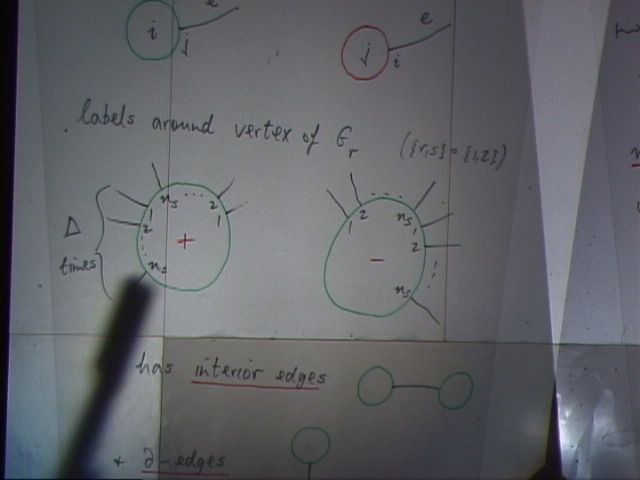 i j e
j i e
labels around vertex of G_r ({r,s} = {1,2})
n_s ... 2 1
1 2 n_s
+
Δ times
2 ... n_s
1 1 2 n_s
−
has interior edges
+ ∂-edges